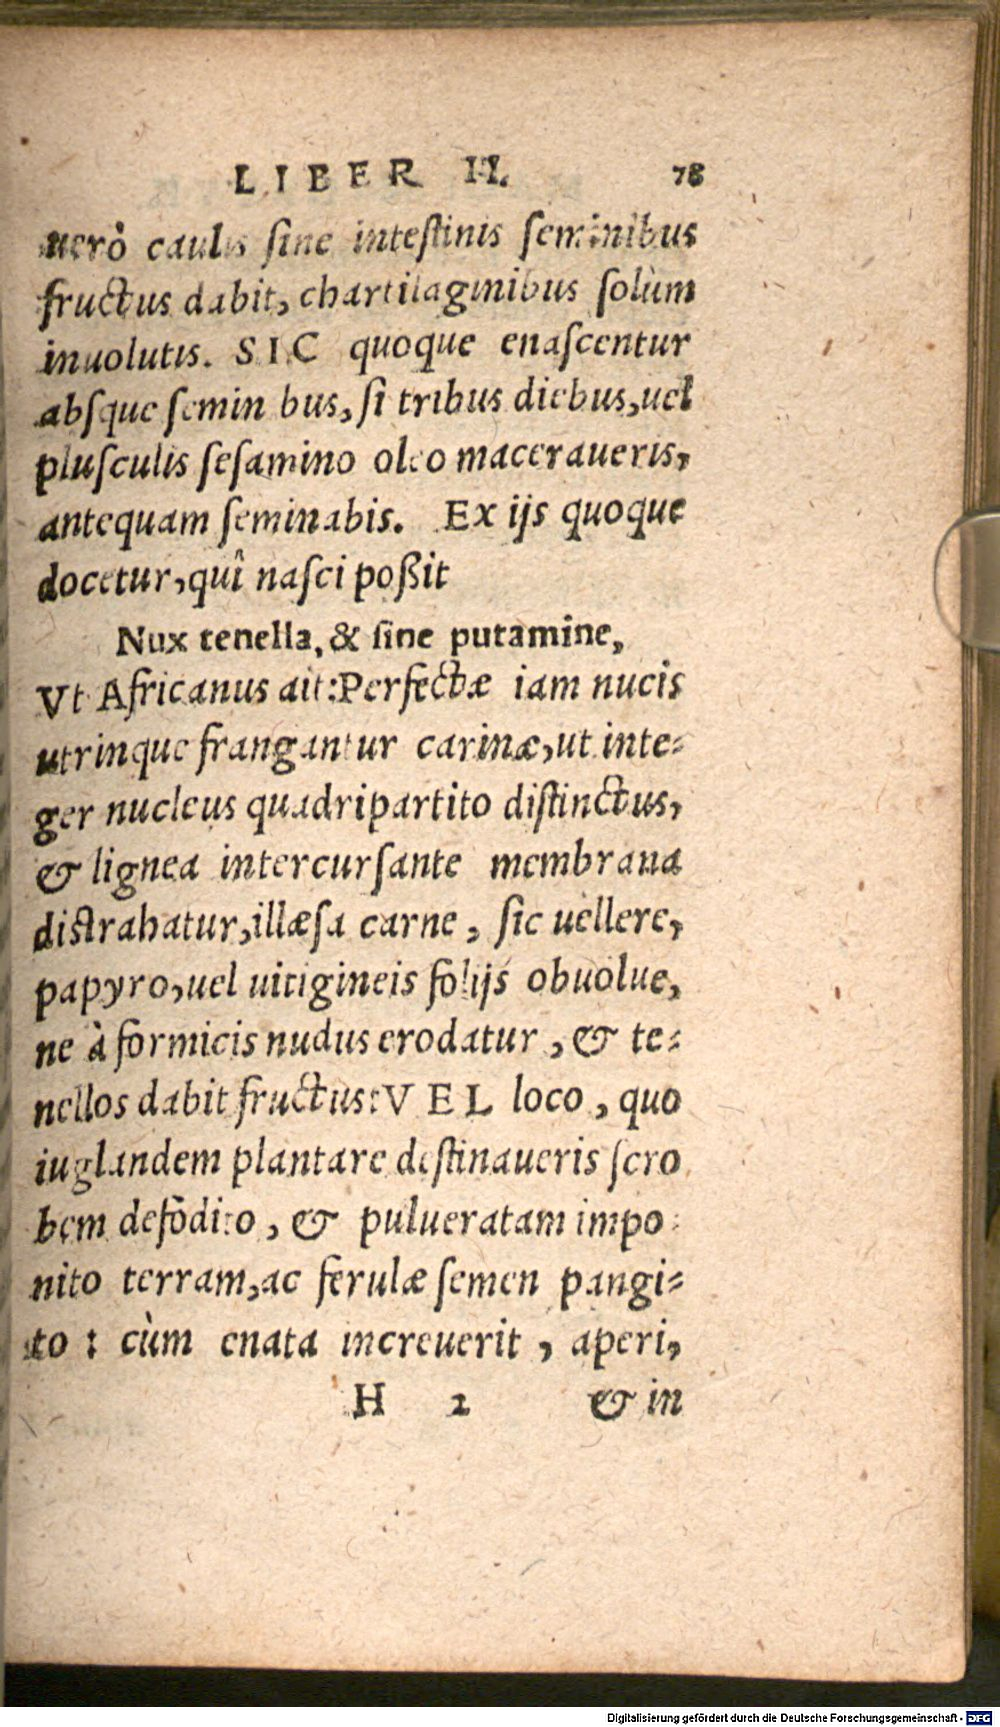 LIBER II. 78
uerò caulis sine intestinis seminibus
fructus dabit, chartilaginibus solùm
inuolutis. SIC quoque enascentur
absque semin bus, si tribus diebus, uel
plusculis sesamino oleo maceraueris,
antequam seminabis. Ex ijs quoque
docetur, quî nasci poßit
Nux tenella, & sine putamine,
Vt Africanus ait: Perfectæ iam nucis
utrinque frangantur carinæ, ut inte-
ger nucleus quadripartito distinctus,
& lignea intercursante membrana
distrahatur, illæsa carne, sic uellere,
papyro, uel uitigineis folijs obuolue,
ne à formicis nudus erodatur, & te-
nellos dabit fructus: VEL loco, quo
iuglandem plantare destinaueris scro
bem defodito, & pulueratam impo-
nito terram, ac ferulæ semen pangi-
to: cùm enata increuerit, aperi,
H 2 & in
Digitalisierung gefördert durch die Deutsche Forschungsgemeinschaft - DFG